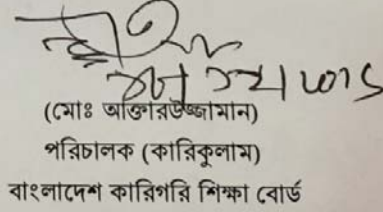 (মোঃ আক্তারউজ্জামান)
পরিচালক (কারিকুলাম)
বাংলাদেশ কারিগরি শিক্ষা বোর্ড